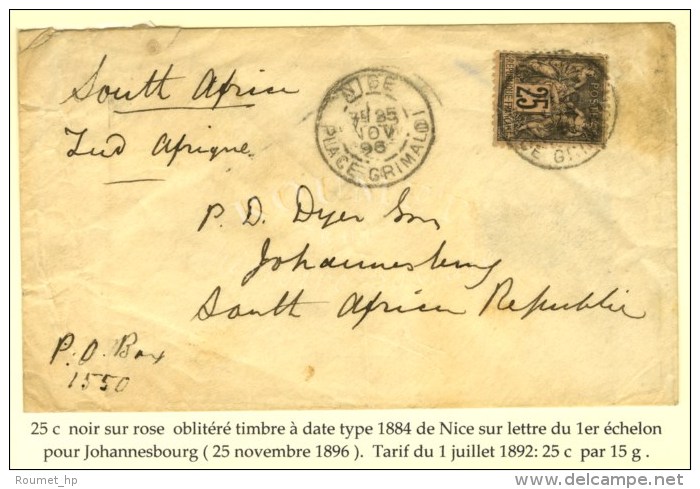 South Africa
Sud Afrique
NICE
25
NOV
96
PLACE GRIMALDI
POSTES
25
P. D. Dyer Esq
Johannesburg
South African Republic
P.O. Box
1550
25 c noir sur rose oblitéré timbre à date type 1884 de Nice sur lettre du 1er échelon
pour Johannesbourg ( 25 novembre 1896 ). Tarif du 1 juillet 1892: 25 c par 15 g .
Roumet_hp
delcampe.net